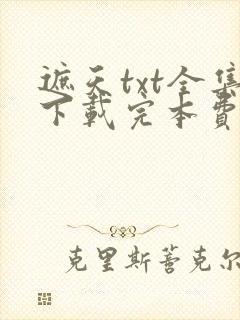 遮天txt全集
下载完本费
克里斯蒂克尔